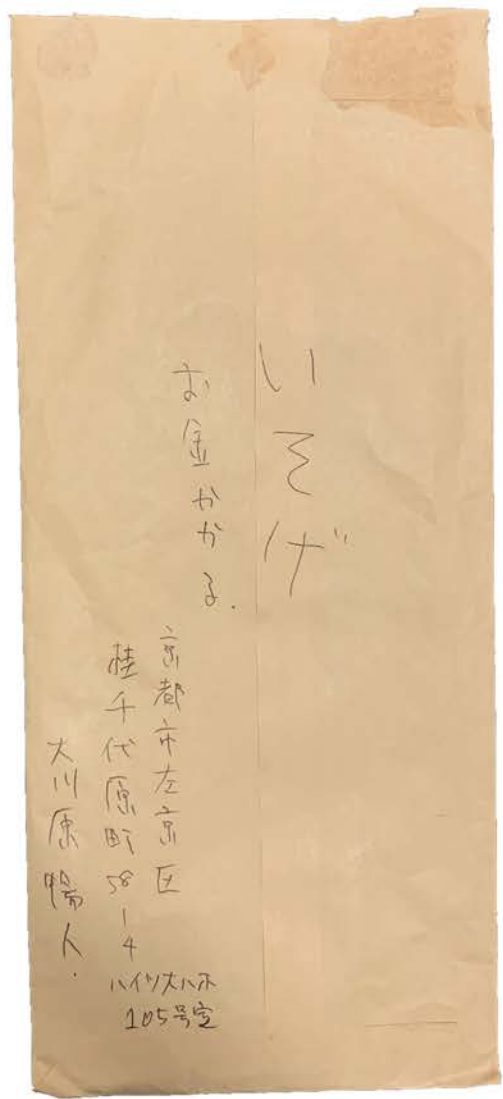 いそげ
お金かかる.
京都市左京区
桂千代原町58-4
ハイツ大ハホ
105号室
大川原暢人.